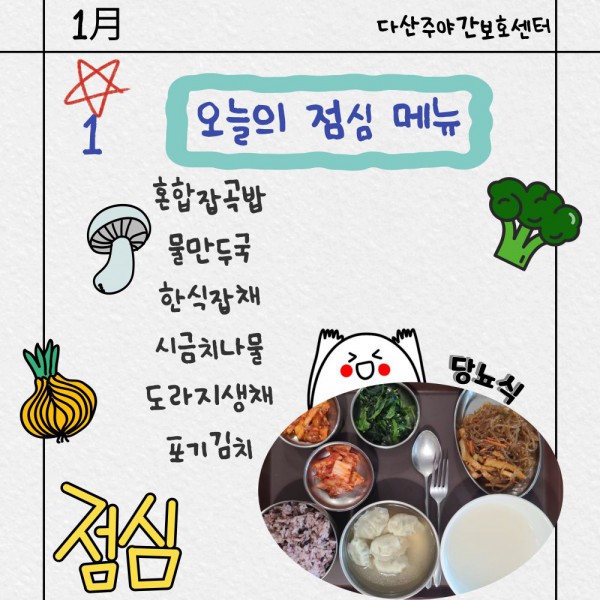 1月
다산주야간보호센터
1
오늘의 점심 메뉴
혼합잡곡밥
물만두국
한식잡채
시금치나물
도라지생채
포기김치
당뇨식
점심